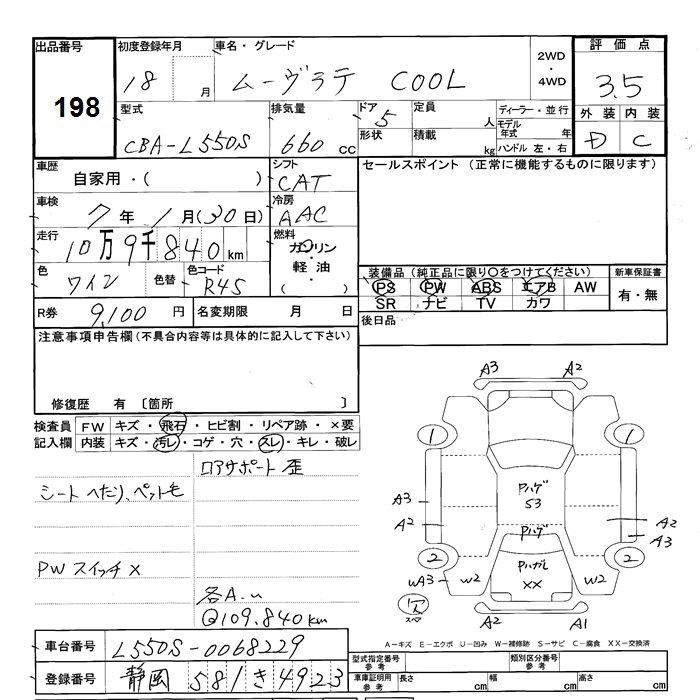 出品番号
198
初度登録年月
18 月
車名・グレード
ムーヴラテ COOL
2WD
・
4WD
評価点
3.5
外装 内装
D C
型式
CBA-L550S
排気量
660 cc
ドア 5
形状
定員 人
積載 kg
ディーラー・並行
モデル年式 年
ハンドル 左・右
車歴
自家用・( )
シフト
CAT
セールスポイント (正常に機能するものに限ります)
車検
7年 1月(30日)
冷房
AAC
走行
10万9千840km
燃料
ガソリン
・
軽油
・
( )
色
ワイン
色替
色コード
R45
装備品 (純正品に限り○をつけてください)
PS PW ABS エアB AW
SR ナビ TV カワ
新車保証書
有・無
R券 9,100 円
名変期限 月 日
後日品
注意事項申告欄(不具合内容等は具体的に記入して下さい)
修復歴 有 〔箇所 〕
検査員
記入欄
FW キズ・飛石・ヒビ割・リペア跡・×要
内装 キズ・汚レ・コゲ・穴・スレ・キレ・破レ
ロアサポート歪
シートヘたり、ペット毛
PWスイッチ×
各A.u
Q109.840km
A3 A2
1 1
A3
A2
Pハゲ
S3
Pハゲ
A2
A3
2 2
Pハガレ
XX
wA3 W2 W2
スペア
A2 A1
A-キズ E-エクボ U-凹み W-補修跡 S-サビ C-腐食 XX-交換済
車台番号 L550S-0068229
登録番号 静岡 581 き 4923
型式指定番号 参考
類別区分番号 参考
車庫証明用 参考
長さ cm
幅 cm
高さ cm